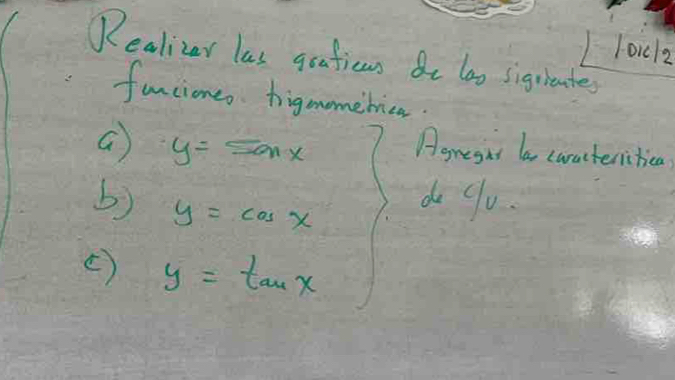 Realizar las graficas de las siguientes
1 Dic/2
funciones trigonometrica.
a) y = Sen x
b) y = cos x
c) y = tan x
Agregar las caracteristica
de c/u.